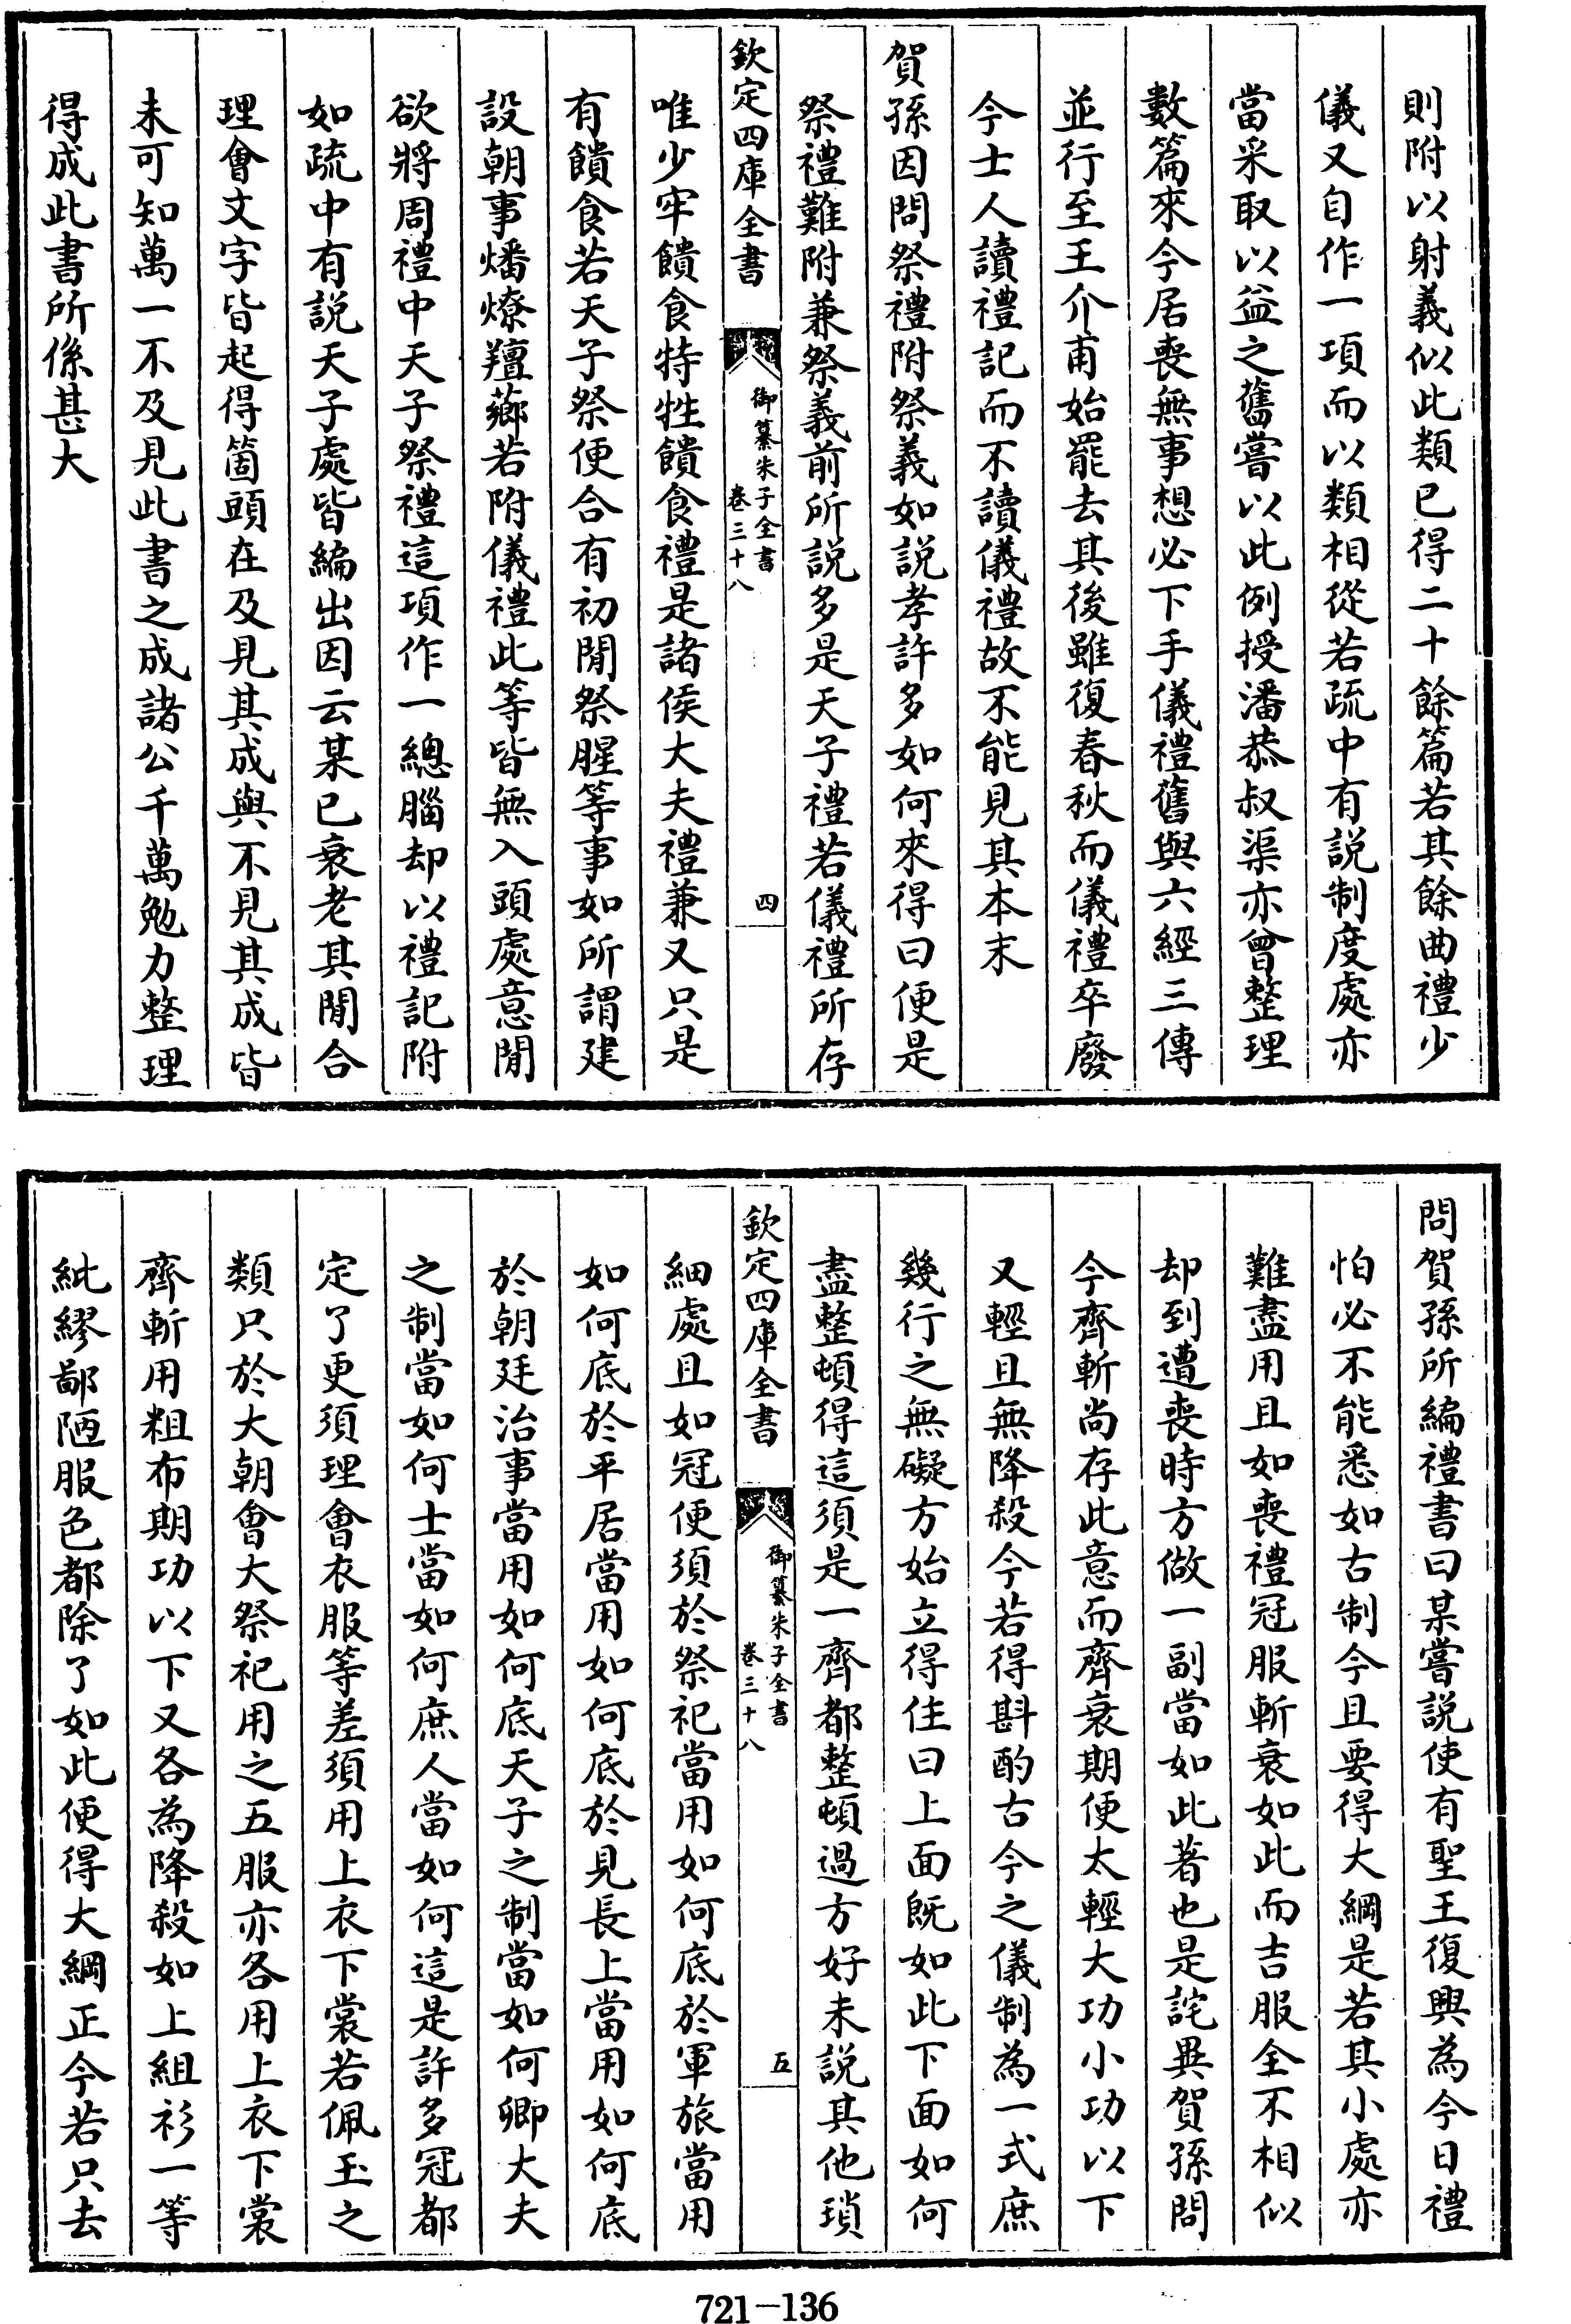 則附以射義似此類已得二十餘篇若其餘曲禮少
儀又自作一項而以類相從若疏中有說制度處亦
當采取以益之舊嘗以此例授潘恭叔渠亦曾整理
數篇來今居喪無事想必下手儀禮舊與六經三傳
並行至王介甫始罷去其後雖復春秋而儀禮卒廢
今士人讀禮記而不讀儀禮故不能見其本末
賀孫因問祭禮附祭義如說孝許多如何來得曰便是
祭禮難附兼祭義前所說多是天子禮若儀禮所存
欽定四庫全書
御纂朱子全書
卷三十八
四
唯少牢饋食特牲饋食禮是諸侯大夫禮兼又只是
有饋食若天子祭便合有初閒祭腥等事如所謂建
設朝事燔燎羶薌若附儀禮此等皆無入頭處意閒
欲將周禮中天子祭禮這項作一總腦却以禮記附
如疏中有說天子處皆編出因云某已衰老其閒合
理會文字皆起得箇頭在及見其成與不見其成皆
未可知萬一不及見此書之成諸公千萬勉力整理
得成此書所係甚大
問賀孫所編禮書曰某嘗說使有聖王復興為今日禮
怕必不能悉如古制今且要得大綱是若其小處亦
難盡用且如喪禮冠服斬衰如此而吉服全不相似
却到遭喪時方做一副當如此著也是詫異賀孫問
今齊斬尚存此意而齊衰期便太輕大功小功以下
又輕且無降殺今若得斟酌古今之儀制為一式庶
幾行之無礙方始立得住曰上面既如此下面如何
盡整頓得這須是一齊都整頓過方好未說其他瑣
欽定四庫全書
御纂朱子全書
卷三十八
五
細處且如冠便須於祭祀當用如何底於軍旅當用
如何底於平居當用如何底於見長上當用如何底
於朝廷治事當用如何底天子之制當如何卿大夫
之制當如何士當如何庶人當如何這是許多冠都
定了更須理會衣服等差須用上衣下裳若佩玉之
類只於大朝會大祭祀用之五服亦各用上衣下裳
齊斬用粗布期功以下又各為降殺如上組衫一等
紕繆鄙陋服色都除了如此便得大綱正今若只去
721-136